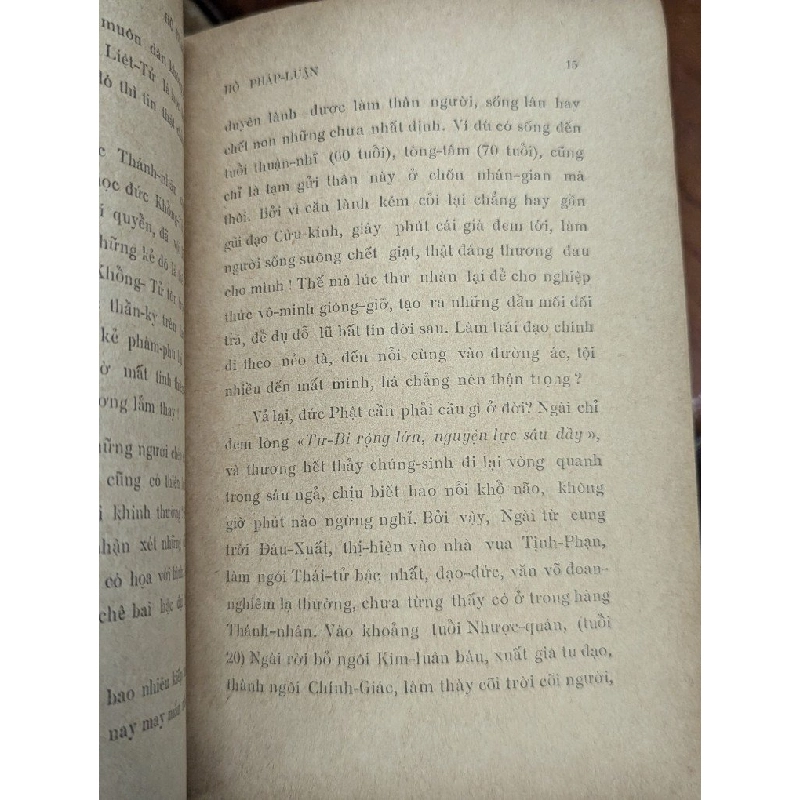 muôn dân
Liệt-Tử là
đó thì tin
Thánh-nhân
học đức Khổng-
quyền, đã
những kẻ đó là
Khổng-Tử tôi
thần-kỳ trên
kẻ phàm-phu
mất tính
lắm thay!
những người
cũng có
khinh thường
nhận xét những
có họa với
chê bai
bao nhiêu kiếp
nay may mắn
HỘ PHÁP-LUẬN 15
duyên lành được làm thân người, sống lâu hay
chết non những chưa nhất định. Ví dù có sống đến
tuổi thuận-nhĩ (60 tuổi), tòng-tâm (70 tuổi), cũng
chỉ là tạm gửi thân này ở chốn nhân-gian mà
thôi. Bởi vì căn lành kém cỏi lại chẳng hay gần
gũi đạo Cứu-kính, giây phút cái già đem tới, làm
người sống suông chết giạt, thật đáng thương đau
cho mình! Thế mà lúc thư nhàn lại để cho nghiệp
thức vô-minh giong-giở, tạo ra những đầu mối dối
trá, để dụ dỗ lũ bất tín đời sau. Làm trái đạo chính
đi theo nẻo tà, đến nỗi cùng vào đường ác, tội
nhiều đến mất mình, há chẳng nên thận trọng?
Vả lại, đức Phật cần phải cầu gì ở đời? Ngài chỉ
đem lòng «Từ-Bi rộng lớn, nguyện lực sâu dầy»,
và thương hết thảy chúng-sinh đi lại vòng quanh
trong sáu ngả, chịu biết bao nỗi khổ não, không
giờ phút nào ngừng nghỉ. Bởi vậy, Ngài từ cung
trời Đâu-Xuất, thị-hiện vào nhà vua Tịnh-Phạn,
làm ngôi Thái-tử bậc nhất, đạo-đức, văn võ đoan-
nghiêm lạ thường, chưa từng thấy có ở trong hàng
Thánh-nhân. Vào khoảng tuổi Nhược-quán, (tuổi
20) Ngài rời bỏ ngôi Kim-luân báu, xuất gia tu đạo,
thành ngôi Chính-Giác, làm thày cõi trời cõi người,